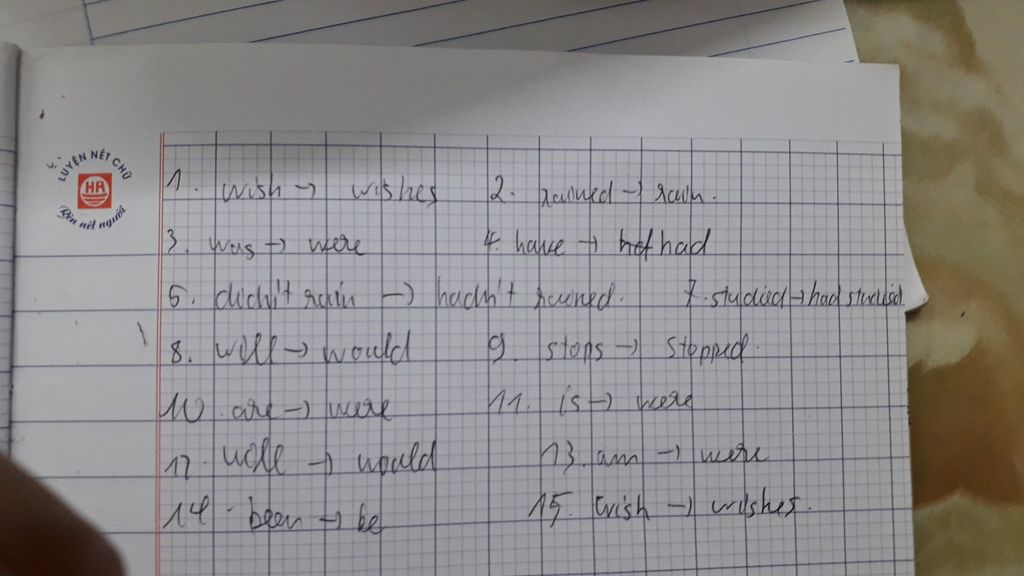 LUYỆN NÉT CHỮ
HA
Rèn nết người
1. wish → wishes 2. rained → rain.
3. was → were 4. have → hof had
5. didn't rain → hadn't rained. 7. studied → had studied
8. will → would 9. stops → stopped.
10. are → were 11. is → were
12. will → would 13. am → were
14. been → be 15. wish → wishes.